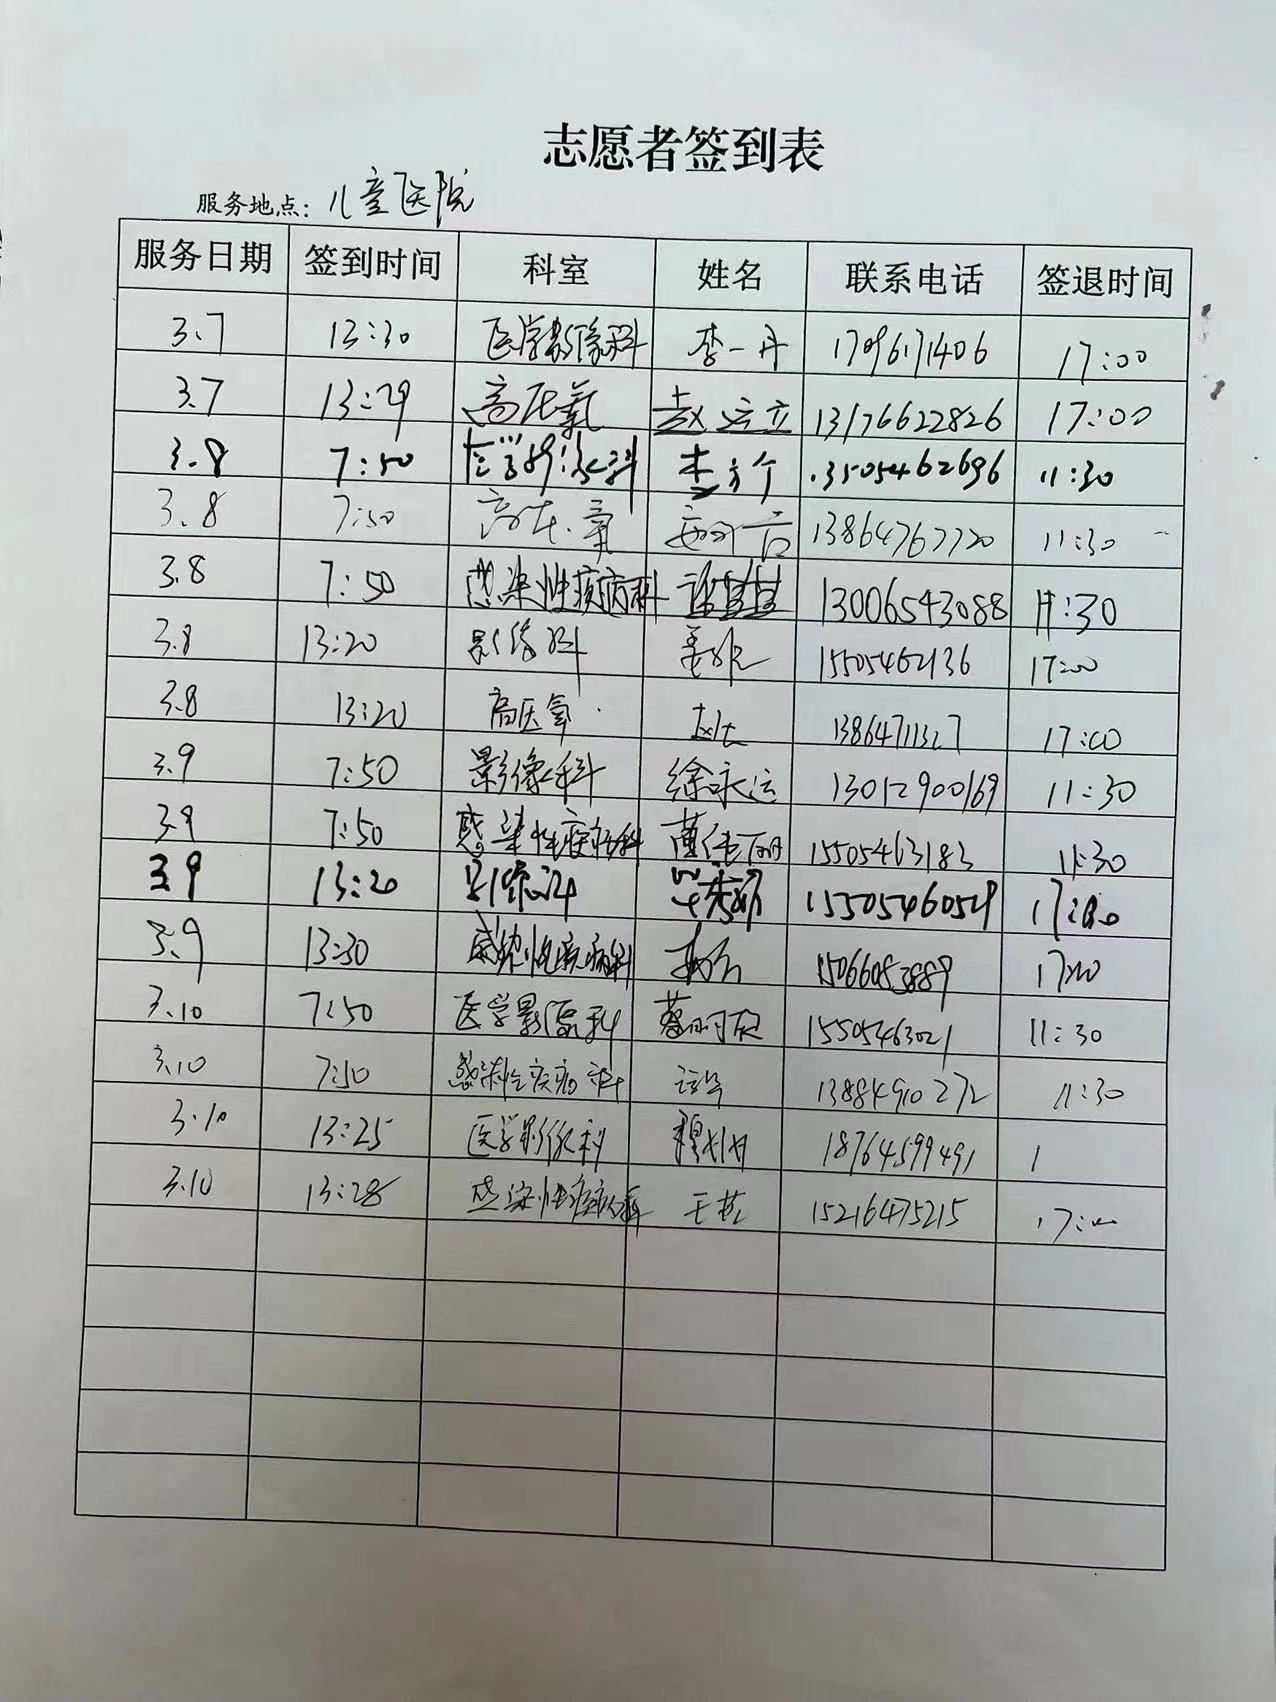 志愿者签到表
服务地点：儿童医院
服务日期 签到时间 科室 姓名 联系电话 签退时间
3.7 13:30 医学影像科 李一丹 17096171406 17:00
3.7 13:29 高压氧 赵运立 13176622826 17:00
3.8 7:50 医学影像科 13505462696 11:30
3.8 7:50 高压氧 13864767720 11:30
3.8 7:50 感染性疾病科 13006543088 11:30
3.8 13:20 影像科 姜 15505462136 17:00
3.8 13:20 高压氧 13864711327 17:00
3.9 7:50 影像科 徐咏运 13012900169 11:30
3.9 7:50 感染性疾病科 15505463183 11:30
3.9 13:20 影像科 15505460529 17:00
3.9 13:30 感染性疾病科 15066083889 17:00
3.10 7:50 医学影像科 蔡明 15505463021 11:30
3.10 7:50 感染性疾病科 13884910272 11:30
3.10 13:25 医学影像科 18764599491 1
3.10 13:28 感染性疾病科 王 15216475215 17:00